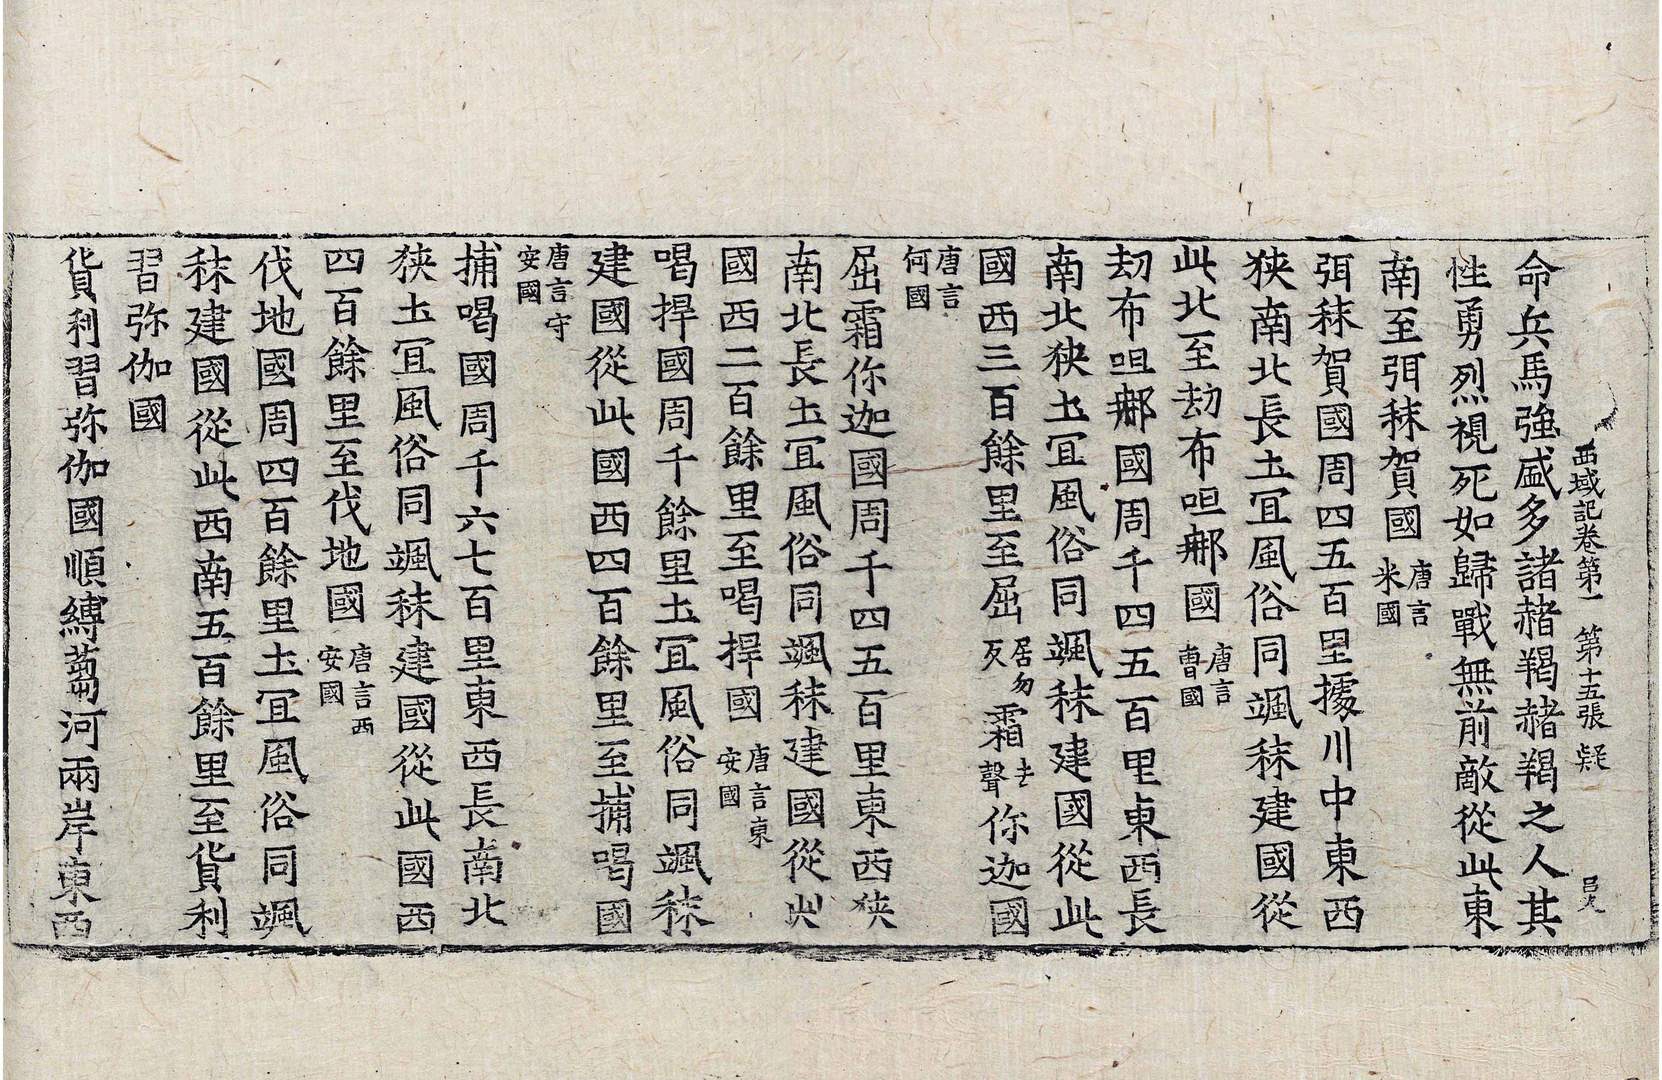 西域記卷第一 第十五張 疑
命兵馬強盛多諸赭羯赭羯之人其
性勇烈視死如歸戰無前敵從此東
南至弭秣賀國唐言米國
弭秣賀國周四五百里據川中東西
狹南北長土冝風俗同颯秣建國從
此北至劫布呾那國唐言曹國
劫布呾那國周千四五百里東西長
南北狹土冝風俗同颯秣建國從此
國西三百餘里至屈居勿反霜去聲你迦國
唐言何國
屈霜你迦國周千四五百里東西狹
南北長土冝風俗同颯秣建國從此
國西二百餘里至喝捍國唐言東安國
喝捍國周千餘里土冝風俗同颯秣
建國從此國西四百餘里至捕喝國
唐言守安國
捕喝國周千六七百里東西長南北
狹土冝風俗同颯秣建國從此國西
四百餘里至伐地國唐言西安國
伐地國周四百餘里土冝風俗同颯
秣建國從此西南五百餘里至貨利
習弥伽國
貨利習弥伽國順縛蒭河兩岸東西